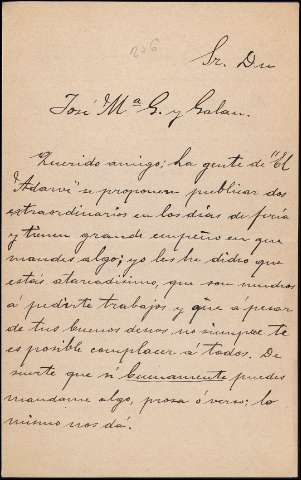 206
Sr. Dn
José Mª G. y Galan.
Querido amigo; la gente de "El
Adarve" se proponen publicar dos
extraordinarios en los días de feria
y tienen grande empeño en que
mandes algo; yo les he didho que
estás atareadísimo, que son muchos
á pedirte trabajos y que á pesar
de tus buenos deseos no siempre te
es posible complacer a todos. De
suerte que si buenamente puedes
mandame algo, prosa ó verso; lo
mismo nos dá.